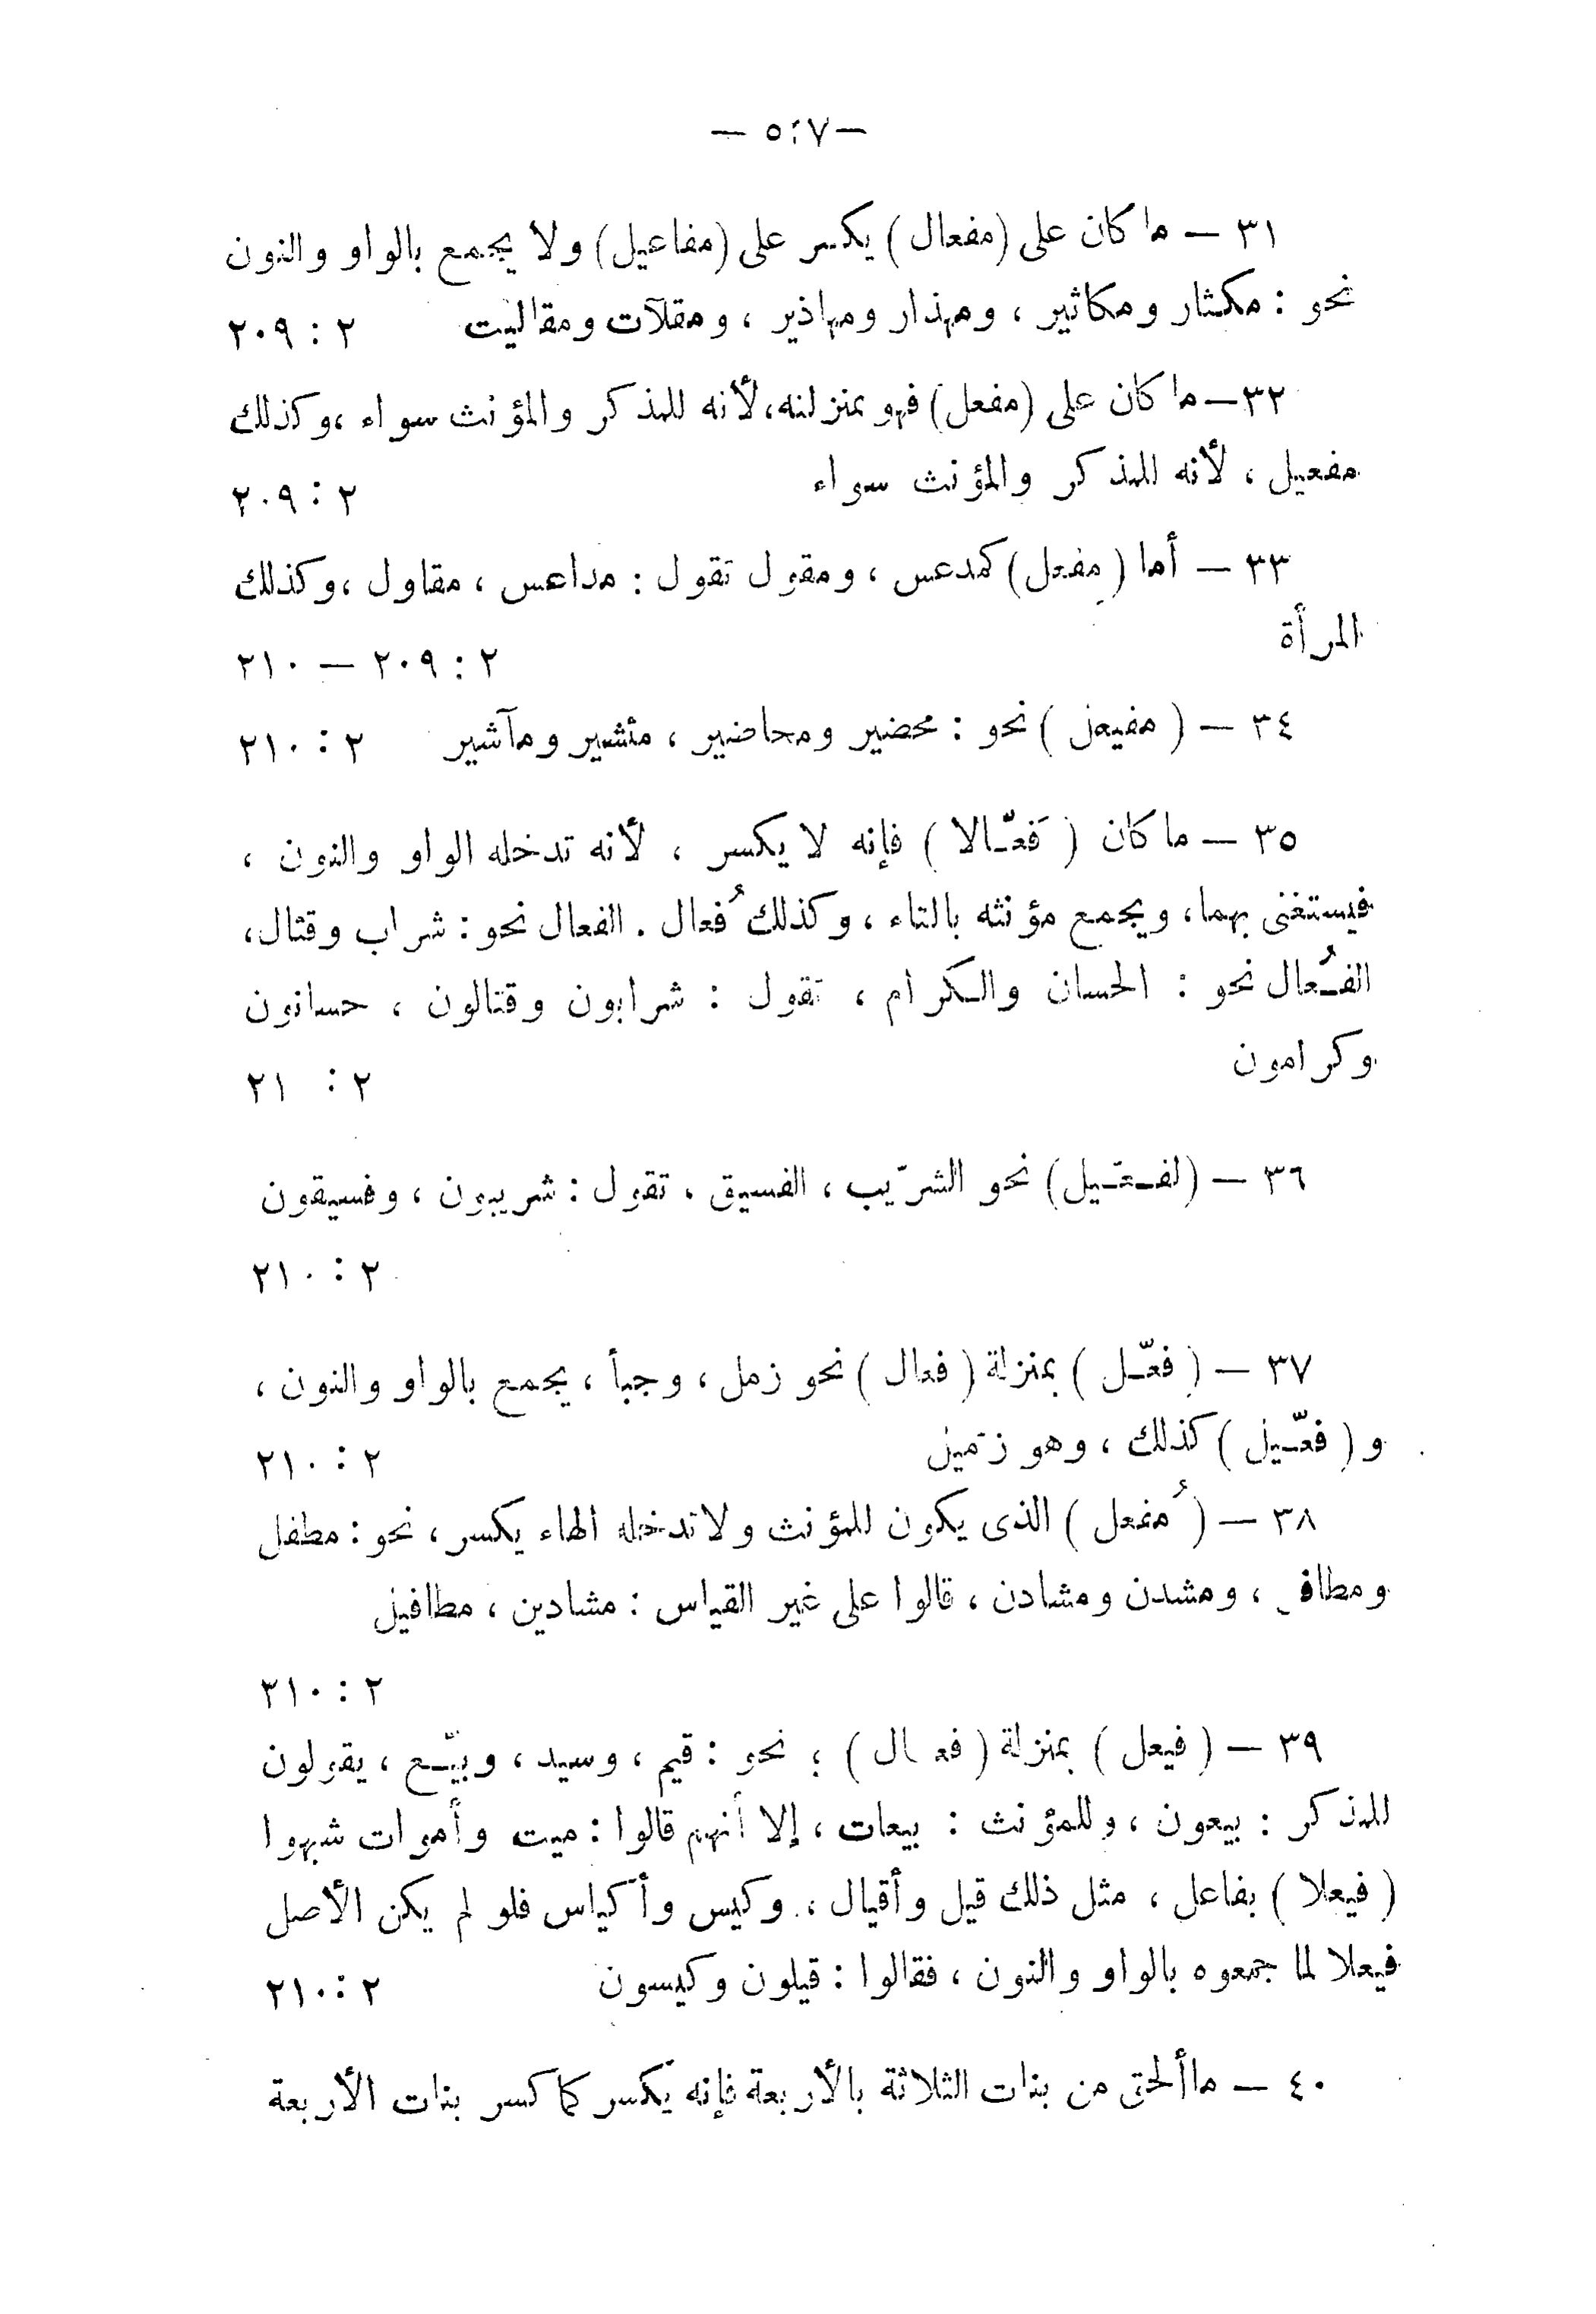 — ٥٤٧ —
٣١ — ما كان على (مفعال) يكسر على (مفاعيل) ولا يجمع بالواو والنون
نحو : مكثار ومكاثير ، ومهذار ومهاذير ، ومقلات ومقاليت ٢ : ٢٠٩
٣٢ — ما كان على (مفعل) فهو بمنزلته، لأنه للمذكر والمؤنث سواء ، وكذلك
مفعيل ، لأنه للمذكر والمؤنث سواء ٢ : ٢٠٩
٣٣ — أما (مفعل) كمدعس ، ومقول تقول : مداعس ، مقاول ، وكذلك
المرأة ٢ : ٢٠٩ — ٢١٠
٣٤ — (مفيعل) نحو : محضير ومحاضير ، مئشير ومآشير ٢ : ٢١٠
٣٥ — ما كان (فَعّـالا) فإنه لا يكسر ، لأنه تدخله الواو والنون ،
فيستغنى بهما، ويجمع مؤنثه بالتاء ، وكذلك فُعال . الفعال نحو : شراب وقتال،
الفُـعال نحو : الحسان والكرام ، تقول : شرابون وقتالون ، حسانون
وكرامون ٢ : ٢١
٣٦ — (لفـعّـيل) نحو الشرّيب ، الفسيق ، تقول : شريبون ، وفسيقون
٢ : ٢١٠
٣٧ — (فعّـل) بمنزلة (فعال) نحو زمل ، وجبأ ، يجمع بالواو والنون ،
و (فعّـيل) كذلك ، وهو زمّيل ٢ : ٢١٠
٣٨ — (مُفعل) الذى يكون للمؤنث ولا تدخله الهاء يكسر ، نحو : مطفل
ومطاف ، ومشدن ومشادن ، قالوا على غير القياس : مشادين ، مطافيل
٢ : ٢١٠
٣٩ — (فيعل) بمنزلة (فعـال) ؛ نحو : قيم ، وسيد ، وبيّـع ، يقولون
للمذكر : بيعون ، وللمؤنث : بيعات ، إلا أنهم قالوا : ميت وأموات شبهوا
(فيعلا) بفاعل ، مثل ذلك قيل وأقيال ، وكيس وأكياس فلو لم يكن الأصل
فيعلا لما جمعوه بالواو والنون ، فقالوا : قيلون وكيسون ٢ : ٢١٠
٤٠ — ما ألحق من بنات الثلاثة بالأربعة فإنه يكسر كما كسر بنات الأربعة